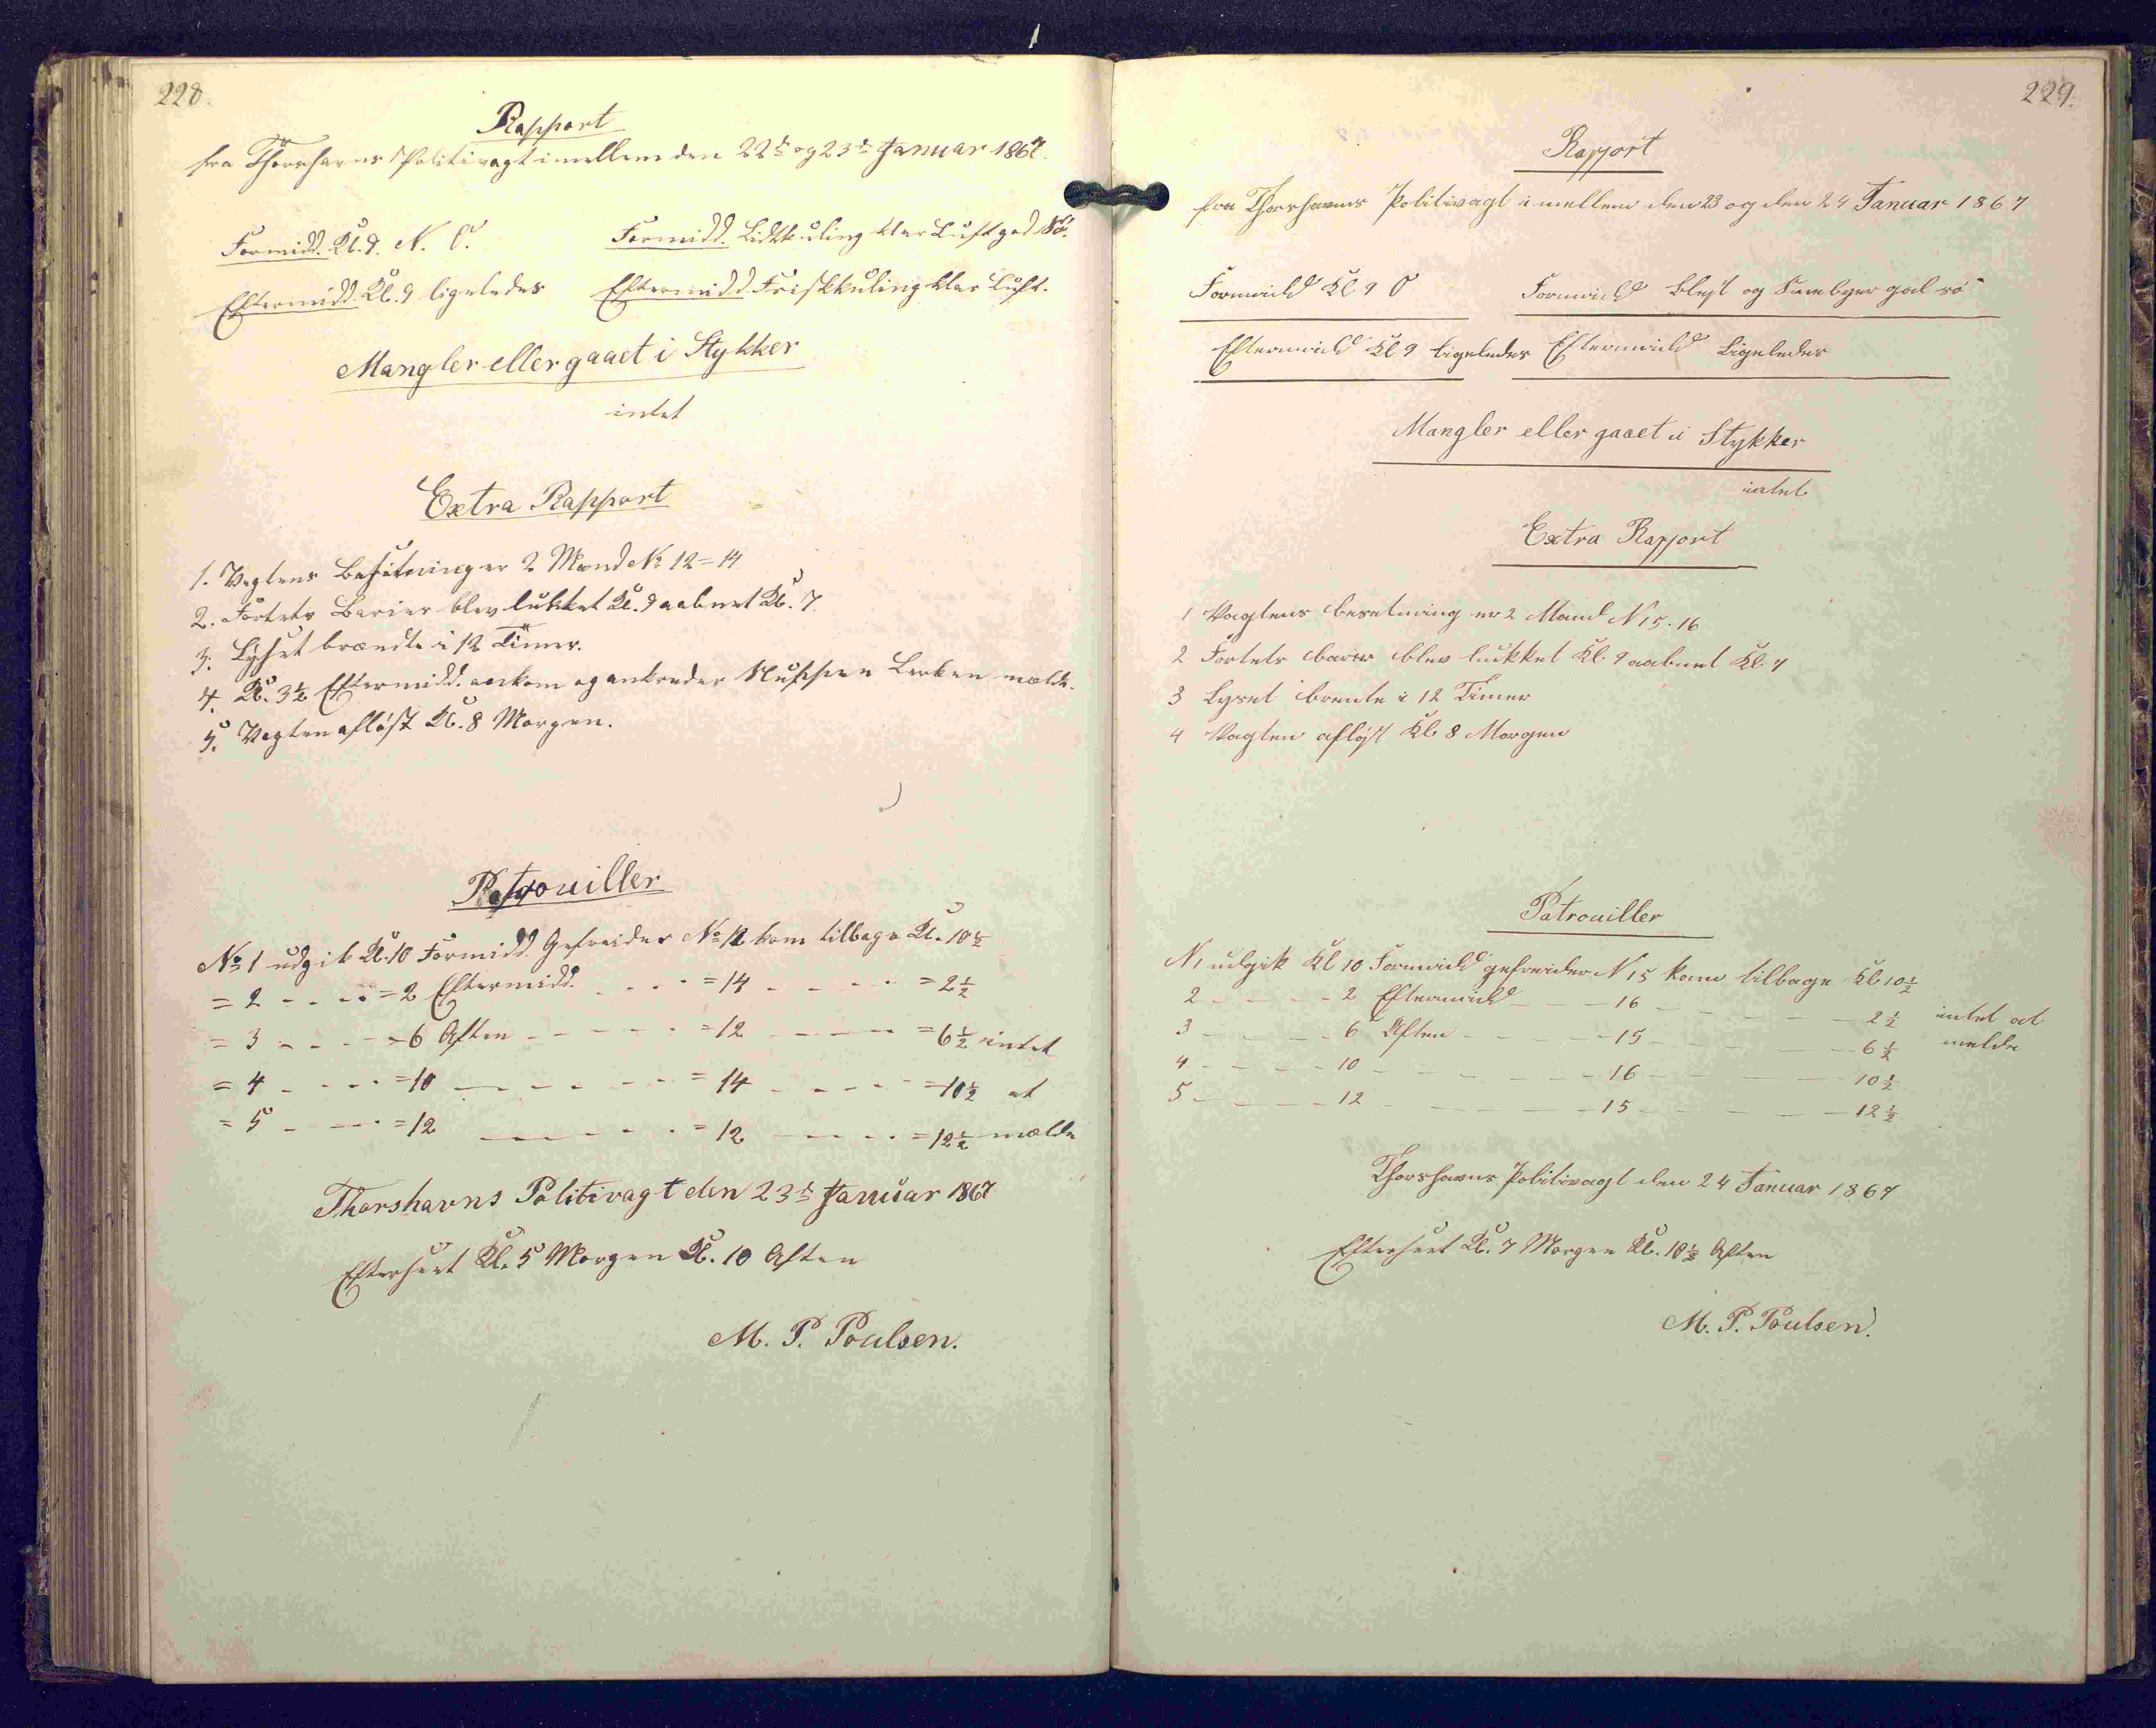 228.
Rapport
fra Thorshavns Politivagt imellem den 22de og 23de Januar 1867.
Formidd. Kl. 9. N. O. Formidd. Lidt kuling klar Luft god Sö.
Eftermidd. Kl. 9 ligeledes Eftermidd. Frisk kuling klar Luft.
Mangler eller gaaet i Stykker
intet
Extra Rapport
1. Vagtens Besætning er 2 Mand No 12 = 14
2. Fortets Barier blev lukket Kl. 9 aabnet Kl. 7.
3. Lyset brændte i 12 Timer.
4. Kl. 3½ Eftermidd. ankom og ankreder Lerken
5. Vagten aflöst Kl. 8 Morgen.
Patrouiller
No 1 udgik Kl. 10 Formidd. Gefreider No 12 kom tilbage Kl. 10½
= 2 - - - - = 2 Eftermidd. - - - = 14 - - - - = 2½
= 3 - - - - = 6 Aften - - - - = 12 - - - - = 6½ intet
= 4 - - - - = 10 - - - - - = 14 - - - - = 10½ at
= 5 - - - - = 12 - - - - - = 12 - - - - = 12½ mælde
Thorshavns Politivagt den 23de Januar 1867
Efterseet Kl. 5 Morgen Kl. 10 Aften
M. P. Poulsen.
229.
Rapport
fra Thorshavns Politivagt imellem den 23 og den 24 Januar 1867
Formidd Kl 9 O Formidd blest og Sneebyer gal sö
Eftermidd Kl 9 ligeledes Eftermidd Ligeledes
Mangler eller gaaet i Stykker
intet
Extra Rapport
1 Vagtens besetning er 2 Mand N 15. 16
2 Fortets barier blev lukket Kl 9 aabnet Kl 7
3 Lyset brente i 12 Timer
4 Vagten aflöst Kl 8 Morgen
Patrouiller
N 1 udgik Kl 10 Formidd gefreider N 15 kom tilbage Kl 10½
2 - - - - 2 Eftermidd - - - 16 - - - - 2½ intet at
3 - - - - 6 Aften - - - - 15 - - - - 6½ melde
4 - - - - 10 - - - - - 16 - - - - 10½
5 - - - - 12 - - - - - 15 - - - - 12½
Thorshavns Politivagt den 24 Januar 1867
Efterseet Kl. 7 Morgen Kl. 10½ Aften
M. P. Poulsen.